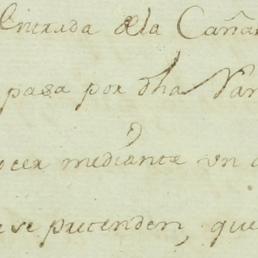 Entrada dela Caña
pasa por dha Var
ocer mediante un
se pretenden, que